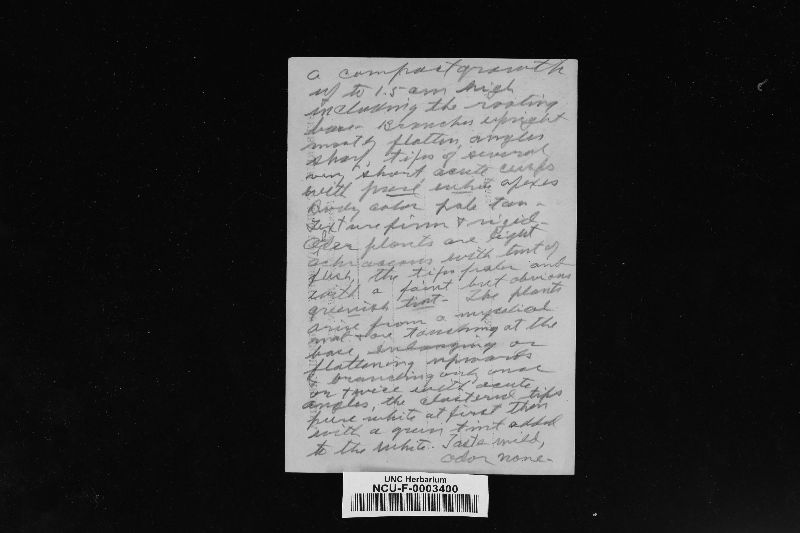 a compact growth
up to 1.5 cm high
including the rooting
base. Branches upright
mostly flatten, angles
sharp, tips of several
very short acute cusps
with pure white apexes
Body color pale tan -
Texture firm & rigid -
plants are light
ochraceous with tint of
flesh, the tips paler and
with a faint but obvious
greenish tint - The plants
arise from a mycelial
mat & are touching at the
base, enlarging or
flattening upwards
& branching only once
or twice with acute
angles, the clustered tips
pure white at first then
with a green tint added
to the white. Taste mild,
odor none -
UNC Herbarium
NCU-F-0003400